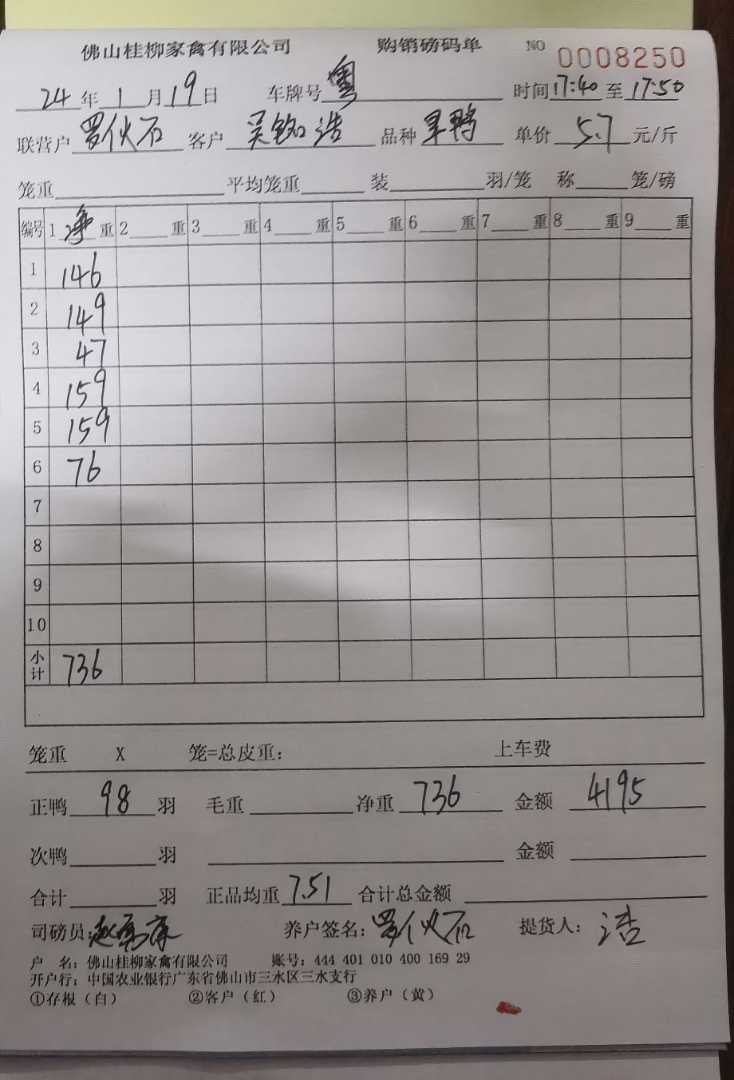 佛山桂柳家禽有限公司 购销磅码单 NO 0008250
24年1月19日 车牌号 粤 时间17:40至17:50
联营户 罗伙石 客户 吴钧浩 品种 旱鸭 单价 5.7 元/斤
笼重 平均笼重 装 羽/笼 称 笼/磅
编号 1净重 2 重 3 重 4 重 5 重 6 重 7 重 8 重 9 重
1 146
2 149
3 47
4 159
5 159
6 76
7
8
9
10
小计 736
笼重 X 笼=总皮重: 上车费
正鸭 98 羽 毛重 净重 736 金额 4195
次鸭 羽 金额
合计 羽 正品均重 7.51 合计总金额
司磅员: 养户签名: 罗伙石 提货人: 浩
户 名: 佛山桂柳家禽有限公司 账号: 444 401 010 400 169 29
开户行: 中国农业银行广东省佛山市三水区三水支行
①存根（白） ②客户（红） ③养户（黄）